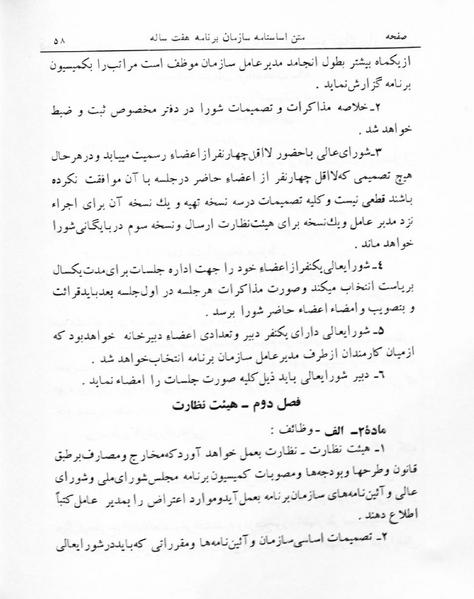 صفحه متن اساسنامه سازمان برنامه هفت ساله ۵۸
از یکماه بیشتر بطول انجامد مدیر عامل سازمان موظف است مراتب را بکمیسیون
برنامه گزارش نماید .
۲ـ خلاصه مذاکرات و تصمیمات شورا در دفتر مخصوص ثبت و ضبط
خواهد شد .
۳ـ شورای عالی با حضور لااقل چهار نفر از اعضاء رسمیت میبابد و در هر حال
هیچ تصمیمی که لااقل چهارنفر از اعضاءِ حاضر در جلسه با آن موافقت نکرده
باشند قطعی نیست و کلیه تصمیمات در سه نسخه تهیه و یك نسخه آن برای اجراء
نزد مدیر عامل و یك نسخه برای هیئت نظارت ارسال و نسخه سوم در بایگانی شورا
خواهد ماند .
۴ـ شورایعالی یکنفر از اعضاءِ خود را جهت اداره جلسات برای مدت یکسال
بریاست انتخاب میکند وصورت مذاکرات هرجلسه در اول جلسه بعد باید قرائت
و بتصویب و امضاء اعضاء حاضر شورا برسد .
۵ـ شورایعالی دارای یکنفر دبیر وتعدادی اعضاءِ دبیرخانه خواهد بود که
از میان کارمندان از طرف مدیر عامل سازمان برنامه انتخاب خواهد شد .
۶ـ دبیر شورایعالی باید ذیل کلیه صورت جلسات را امضاء نماید .
فصل دوم ـ هیئت نظارت
مادهٔ ۲ـ الف ـ وظائف :
۱ـ هیئت نظارت ـ نظارت بعمل خواهد آورد که مخارج و مصارف بر طبق
قانون وطرحها وبودجه‌ها ومصوبات کمیسیون برنامه مجلس شورای ملی و شورای
عالی و آئین‌نامه‌های سازمان برنامه بعمل آید و موارد اعتراض را بمدیر عامل کتباً
اطلاع دهند .
۲ـ تصمیمات اساسی سازمان و آئین‌نامه‌ها ومقرراتی که باید در شورایعالی